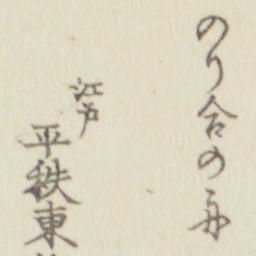 のり合の舟
江戸
平秩東